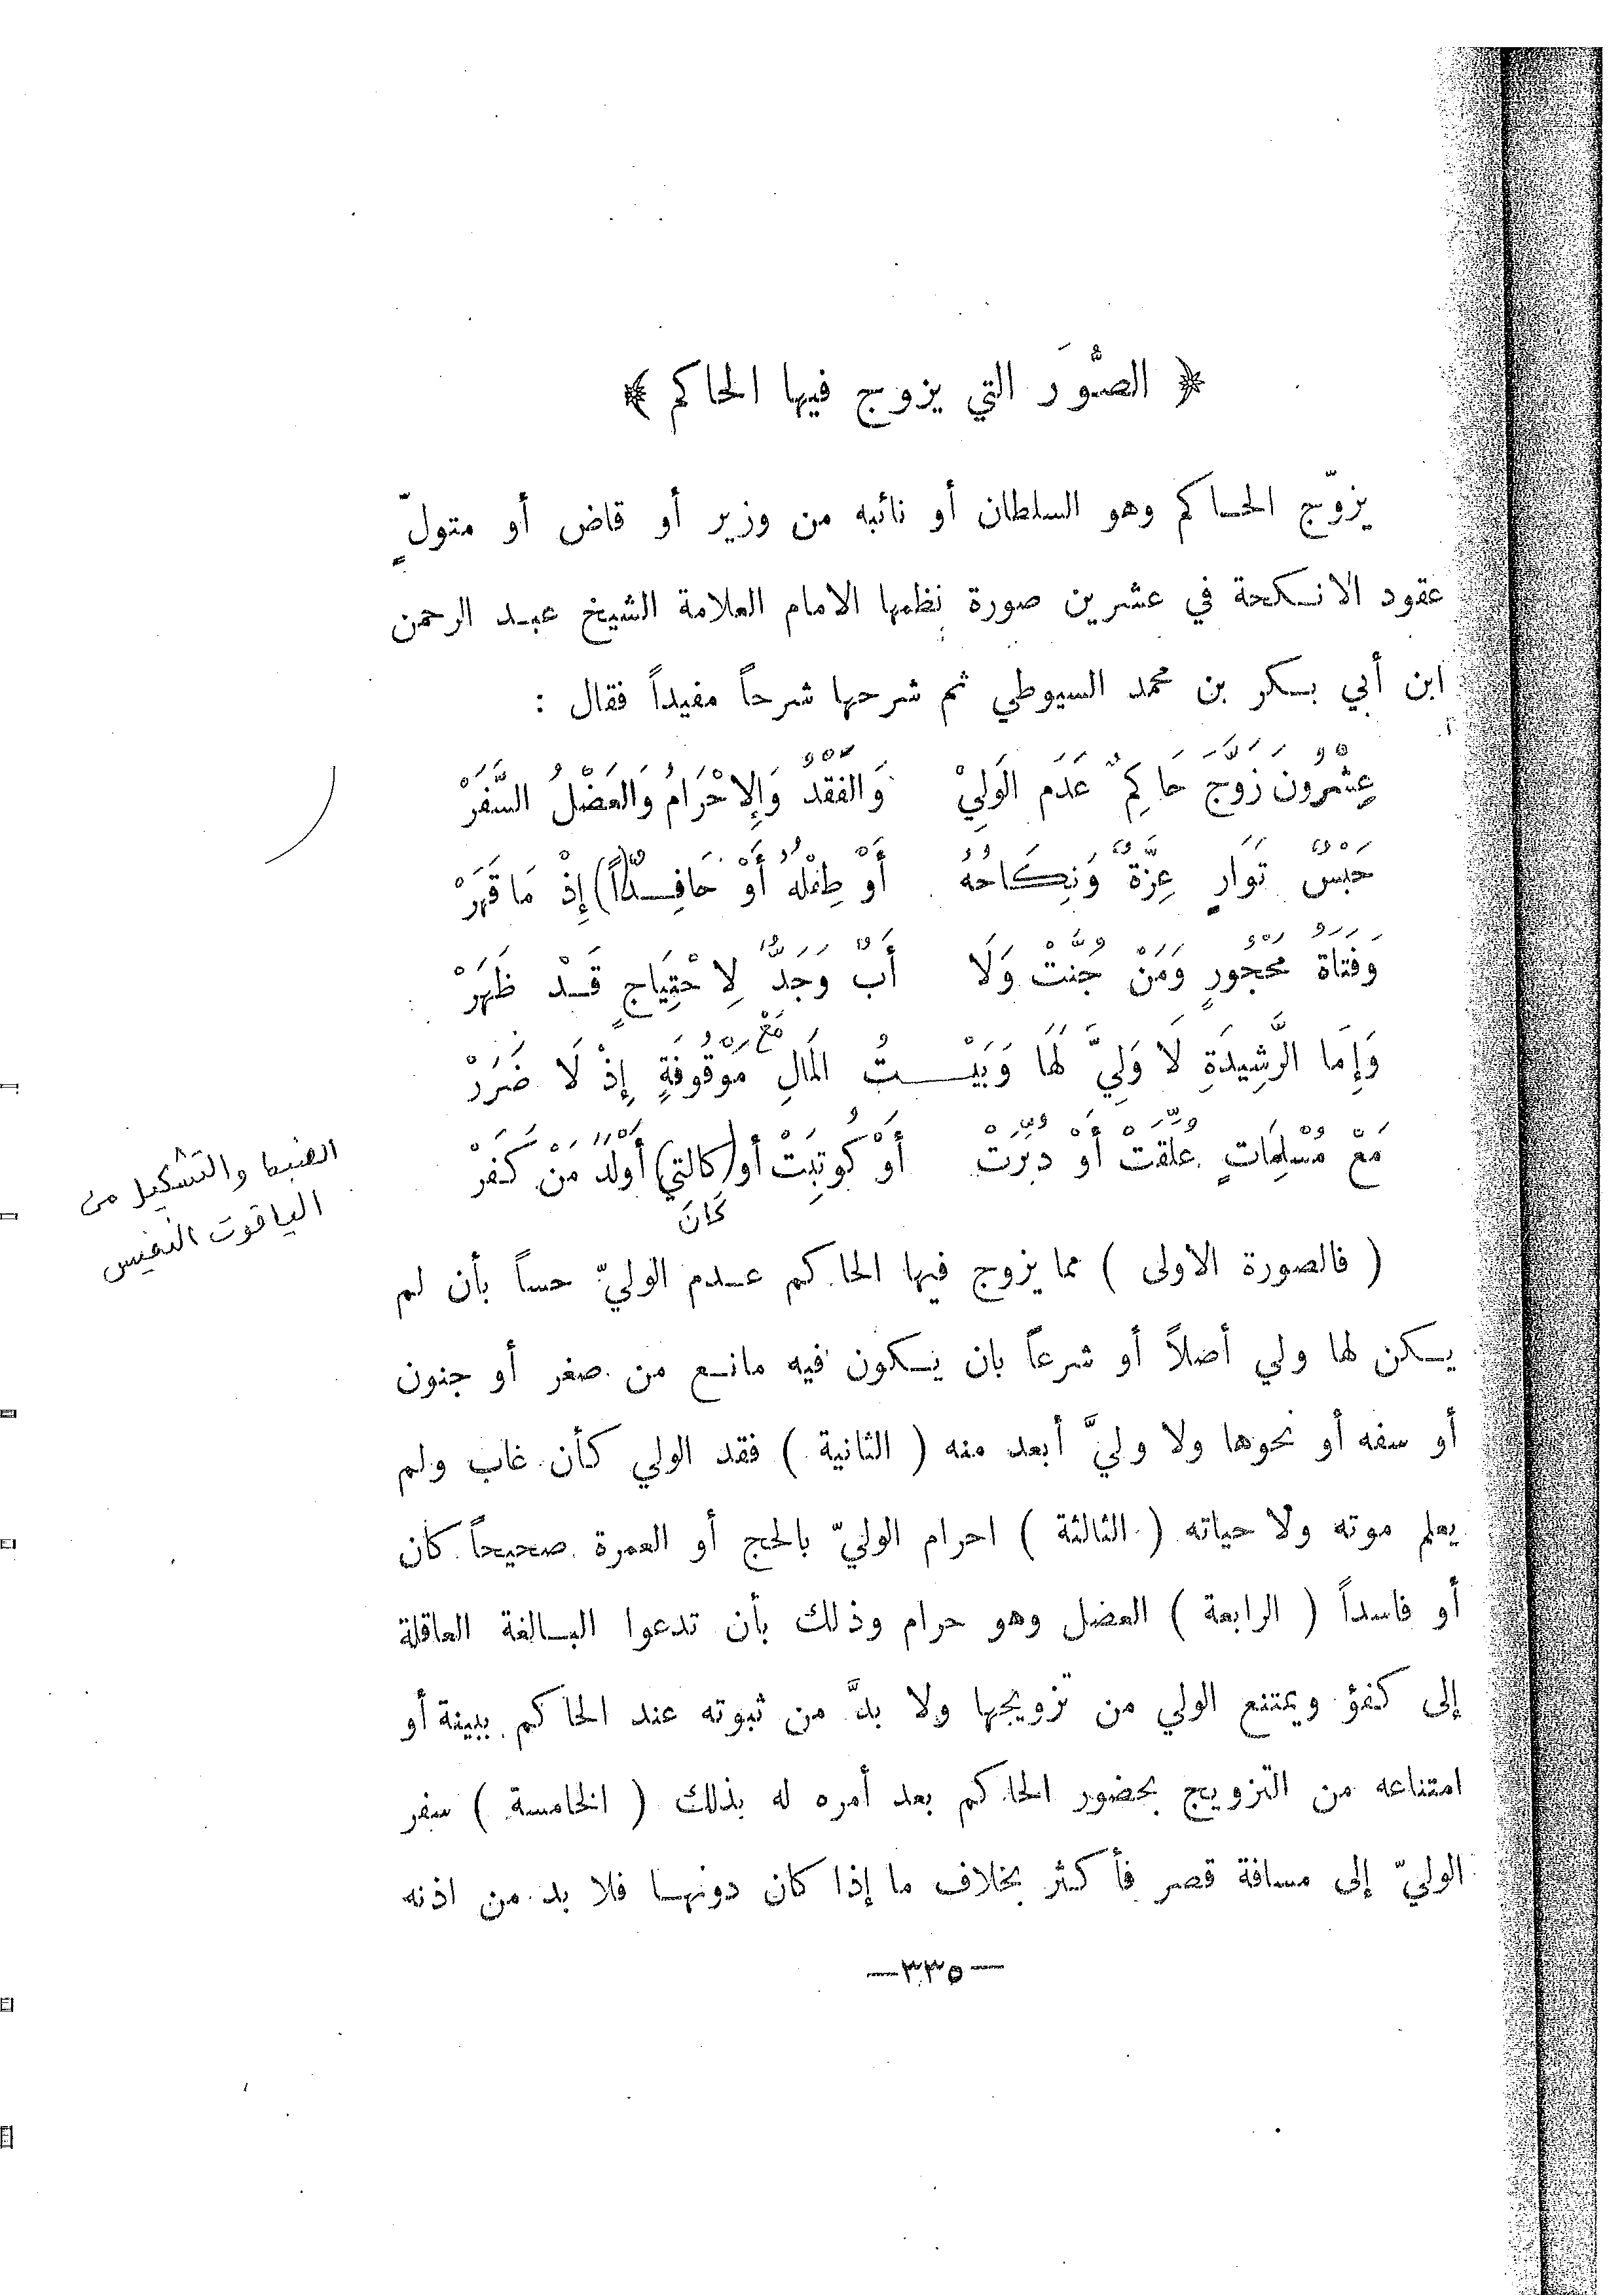 ﴿ الصُّوَر التي يزوج فيها الحاكم ﴾
يزوّج الحاكم وهو السلطان أو نائبه من وزير أو قاض أو متولٍّ
عقود الانكحة في عشرين صورة نظمها الامام العلامة الشيخ عبد الرحمن
ابن أبي بكر بن محمد السيوطي ثم شرحها شرحاً مفيداً فقال :
عِشْرُونَ زَوَّجَ حَاكِمٌ عَدَمَ الوَلِيْ وَالفَقْدُ وَالإِحْرَامُ وَالعَضْلُ السَّفَرْ
حَبْسٌ تَوَارٍ عِزَّةٌ وَنِكَاحُهُ أَوْ طِفْلُهُ أَوْ حَافِدٌ (أ) إِذْ مَا قَهَرْ
وَفَتَاةُ مَحْجُورٍ وَمَنْ جُنَّتْ وَلَا أَبٌ وَجَدٌّ لِاحْتِيَاجٍ قَدْ ظَهَرْ
وَإِمَا الرَّشِيدَةِ لَا وَلِيَّ لَهَا وَبَيْتُ المَالِ مَعْ مَوْقُوفَةٍ إِذْ لَا ضَرَرْ
مَعَ مُسْلِمَاتٍ عُلِّقَتْ أَوْ دُبِّرَتْ أَوْ كُوتِبَتْ أَوْ (كالتي) أَوْلَدَ مَنْ كَفَرْ
كَانَ
الضبط والتشكيل من
الياقوت النفيس
( فالصورة الاولى ) مما يزوج فيها الحاكم عدم الوليّ حساً بأن لم
يكن لها ولي أصلاً أو شرعاً بان يكون فيه مانع من صغر أو جنون
أو سفه أو نحوها ولا وليَّ أبعد منه ( الثانية ) فقد الولي كأن غاب ولم
يعلم موته ولا حياته ( الثالثة ) احرام الوليّ بالحج أو العمرة صحيحاً كان
أو فاسداً ( الرابعة ) العضل وهو حرام وذلك بأن تدعوا البالغة العاقلة
إلى كفؤ ويمتنع الولي من تزويجها ولا بدَّ من ثبوته عند الحاكم ببينة أو
امتناعه من التزويج بحضور الحاكم بعد أمره له بذلك ( الخامسة ) سفر
الوليّ إلى مسافة قصر فأكثر بخلاف ما إذا كان دونها فلا بد من اذنه
— ٢٣٥ —